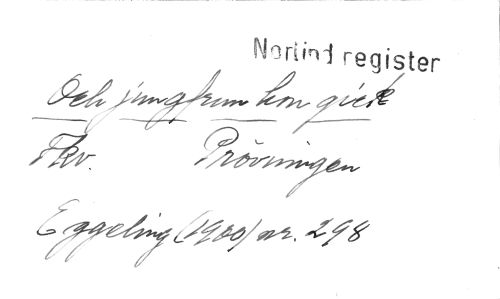 Norlind register
Och jungfrun hon gick
Fkv. Prövningen
Eggeling (1900) nr. 298